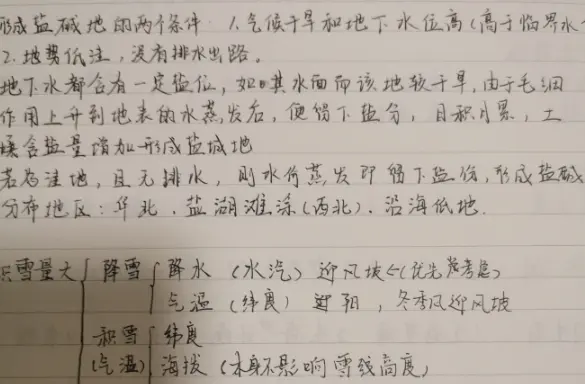 形成盐碱地的两个条件: 1.气候干旱和地下水位高(高于临界水
2.地势低洼,没有排水出路。
地下水都含有一定盐位,如其水面而该地较干旱,由于毛细
作用上升到地表的水蒸发后,便留下盐分,日积月累,土
壤含盐量增加形成盐碱地
若为洼地,且无排水,则水份蒸发即留下盐份,形成盐碱
分布地区:华北.盐湖滩涂(西北).沿海低地.
积雪量大 降雪 降水(水汽)迎风坡←(优先考虑)
气温(纬度) 阳,冬季风迎风坡
积雪 纬度
(气温) 海拔(本身不影响雪线高度)